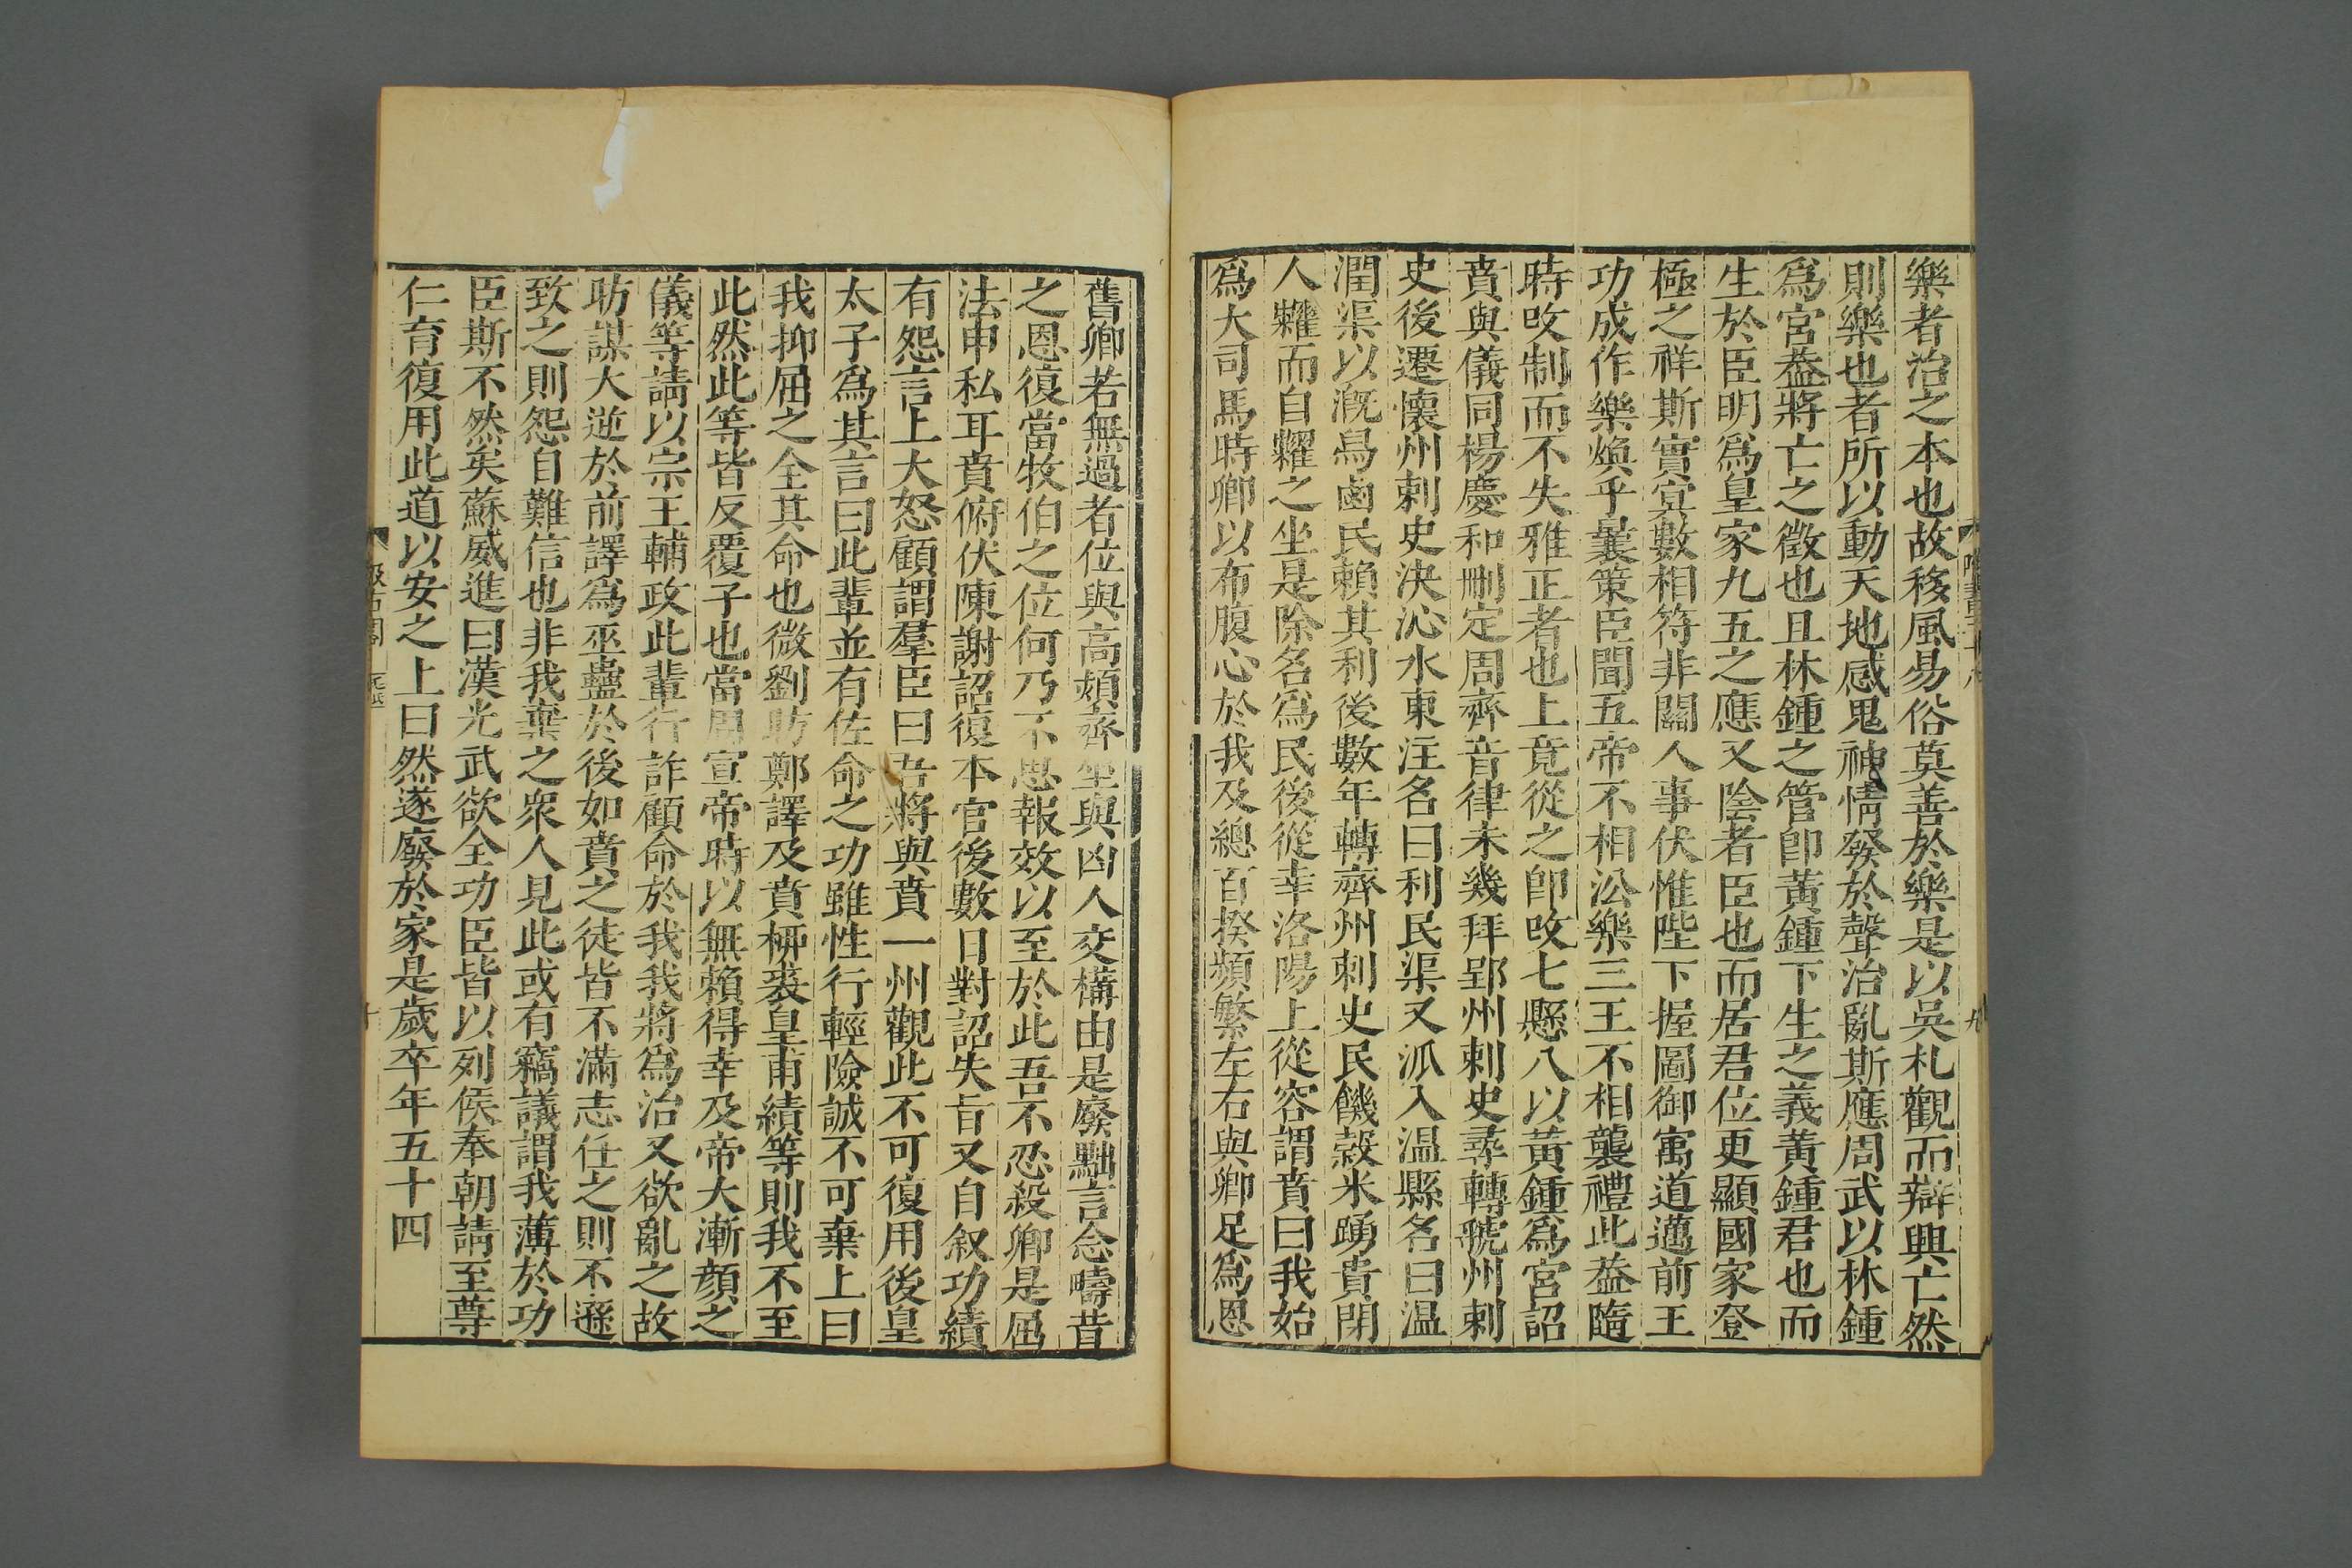 樂者治之本也故移風易俗莫善於樂是以吳札觀而辯興亡然
則樂也者所以動天地感鬼神情發於聲治亂斯應周武以林鍾
爲宮葢將亡之徵也且林鍾之管卽黃鍾下生之義黃鍾君也而
生於臣明爲皇家九五之應又陰者臣也而居君位更顯國家登
極之祥斯實冥數相符非關人事伏惟陛下握圖御㝢道邁前王
功成作樂煥乎曩策臣聞五帝不相㳂樂三王不相襲禮此葢隨
時改制而不失雅正者也上竟從之卽改七懸八以黃鍾爲宮詔
賁與儀同楊慶和刪定周齊音律未幾拜郢州刺史尋轉虢州刺
史後遷懷州刺史決沁水東注名曰利民渠又派入温縣名曰温
潤渠以溉舃鹵民賴其利後數年轉齊州刺史民饑穀米踴貴閉
人糶而自糶之坐是除名爲民後從幸洛陽上從容謂賁曰我始
爲大司馬時卿以布腹心於我及總百揆頻繁左右與卿足爲恩
舊卿若無過者位與高熲齊坐與凶人交構由是廢黜言念疇昔
之恩復當牧伯之位何乃不思報效以至於此吾不忍殺卿是屈
法申私耳賁俯伏陳謝詔復本官後數日對詔失旨又自叙功績
有怨言上大怒顧謂羣臣曰吾將與賁一州觀此不可復用後皇
太子爲其言曰此輩並有佐命之功雖性行輕險誠不可棄上曰
我抑屈之全其命也微劉昉鄭譯及賁柳裘皇甫績等則我不至
此然此等皆反覆子也當周宣帝時以無賴得幸及帝大漸顔之
儀等請以宗王輔政此輩行詐顧命於我我將爲治又欲亂之故
昉謀大逆於前譯爲巫蠱於後如賁之徒皆不滿志任之則不遜
致之則怨自難信也非我棄之衆人見此或有竊議謂我薄於功
臣斯不然矣蘇威進曰漢光武欲全功臣皆以列侯奉朝請至尊
仁育復用此道以安之上曰然遂廢於家是歲卒年五十四